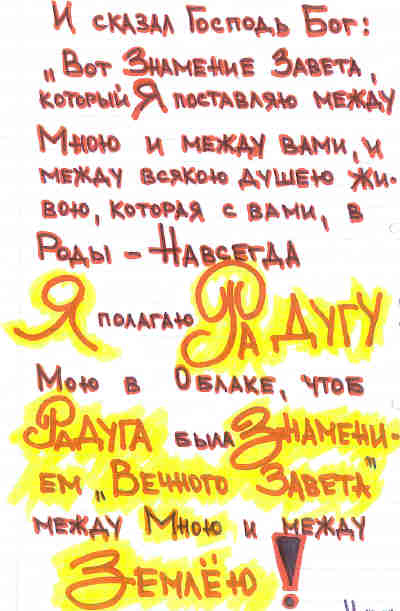 И сказал Господь Бог:
„Вот Знамение Завета,
который Я поставляю между
Мною и между вами, и
между всякою душею жи-
вою, которая с вами, в
Роды – Навсегда
Я полагаю Радугу
Мою в Облаке, чтоб
Радуга была Знамени-
ем „Вечного Завета"
между Мною и между
Землёю!